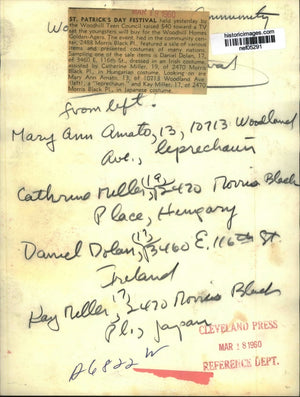 MAR 19 1960
Community
historicimages.com
nef05291
ST. PATRICK'S DAY FESTIVAL held yesterday by
the Woodhill Teen Council raised $50 toward a TV
set the youngsters will buy for the Woodhill Homes
Golden-Agers. The event, held in the community cen-
ter, 2488 Morris Black Pl., featured a sale of various
items and presented costumes of many nations.
Shown at one of the sale items is Daniel Dolan, 13,
of 3460 E. 116th St., dressed in an Irish costume,
assisted by Catherine Miller, 19, of 2470 Morris
Black Pl., in Hungarian costume. Looking on are
Mary Ann Amato, 13, of 10713 Woodland Ave.
(left) a "leprechaun" and Kay Miller, 17, of 2470
Morris Black Pl., in Japanese costume.
from left.
Mary Ann Amato, 13, 10713 Woodland
Ave., leprechaun
(19)
Cathrine Miller, 2470 Morris Black
Place, Hungary
(13)
Daniel Dolan, 3460 E. 116th St
Ireland
(17)
Kay Miller, 2470 Morris Black
Pl., Japan
CLEVELAND PRESS
MAR 18 1960
REFERENCE DEPT.
A6822 W